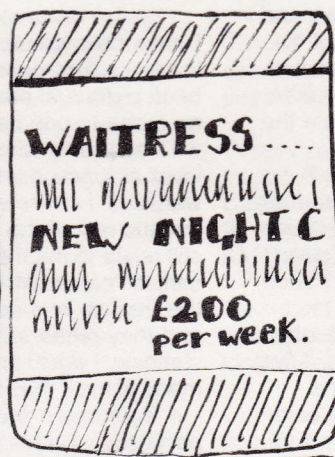 WAITRESS....
NEW NIGHT C
£200
per week.